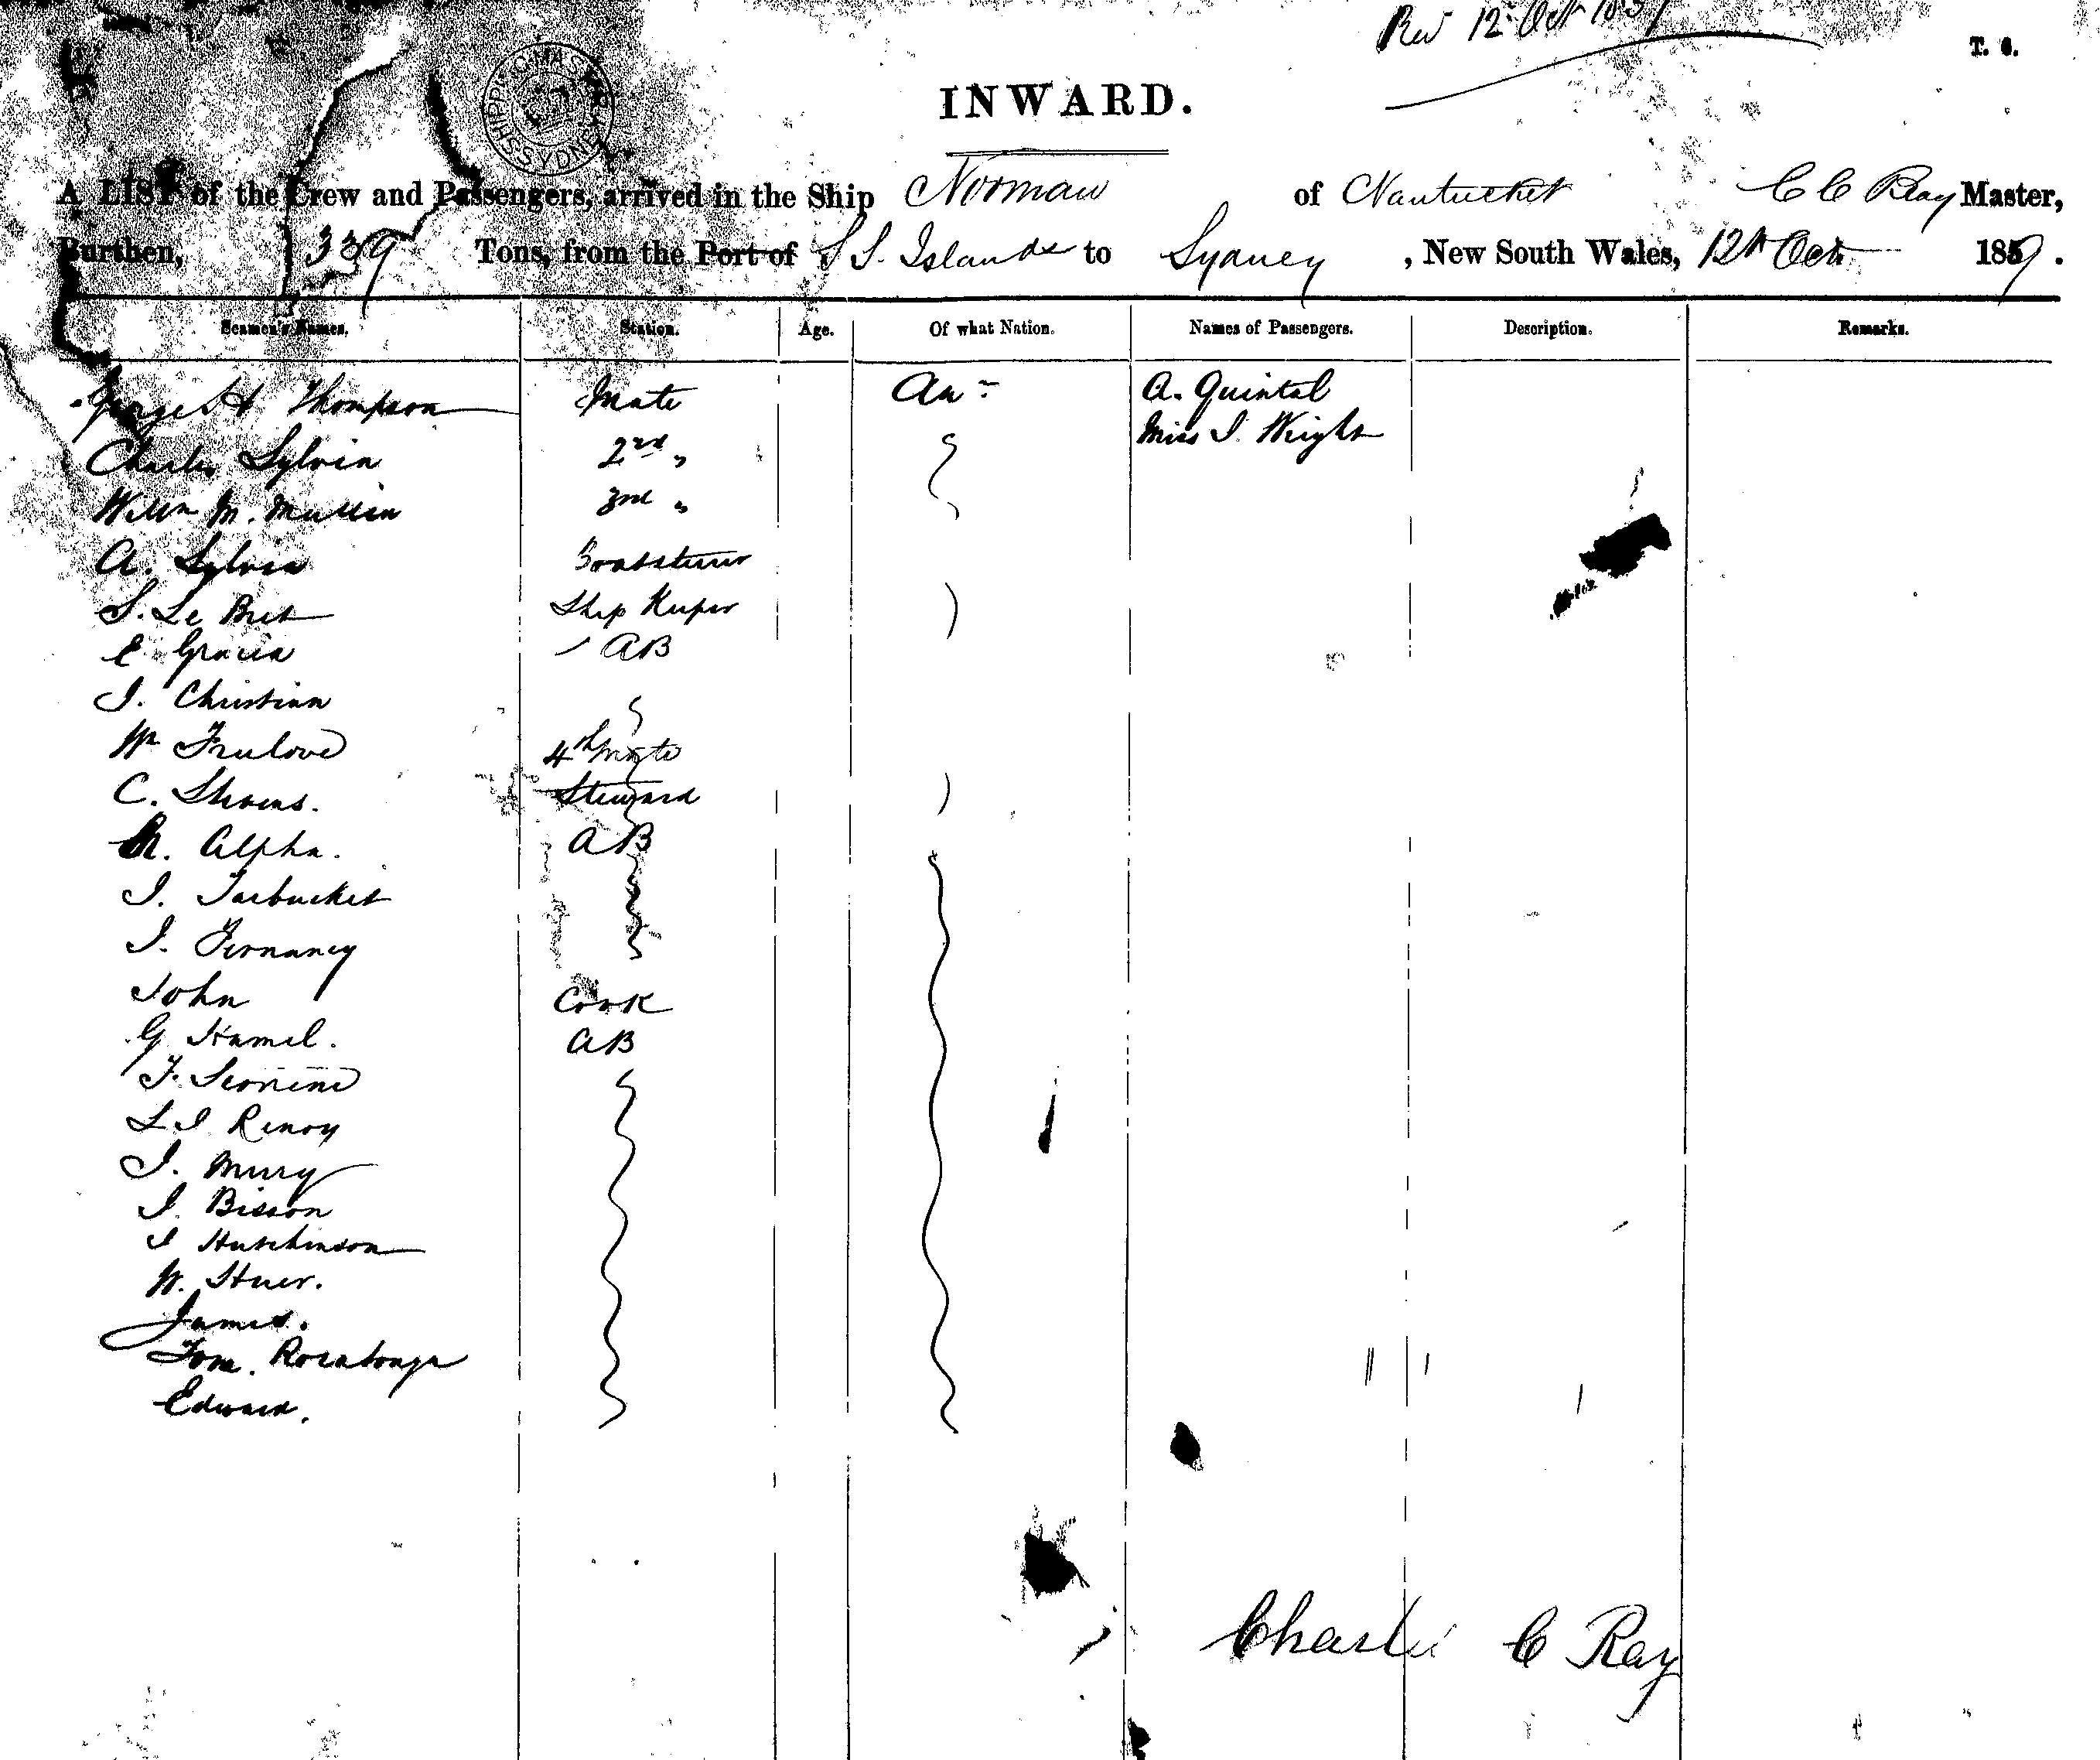 Rev 12th Oct 1857
T. G.
SHIPPING MASTERS SYDNEY
INWARD.
A LIST of the Crew and Passengers, arrived in the Ship Norman of Nantucket C C Ray Master,
Burthen, 339 Tons, from the Port of S S. Islands to Sydney, New South Wales, 12th Oct 1857.
Seamen's Names. Station. Age. Of what Nation. Names of Passengers. Description. Remarks.
George H Thompson Mate Am A. Quintal
Miss I. Wright
Charles Sylvia 2nd "
Willm M. Mullin 3rd "
A. Sylvia Boatsteerer
S. Le Bret Ship Keeper
E Gracia AB
I. Christian
Wm Trulove 4th Mate
C. Stevens. Steward
M. Alpha. AB
I. Tarbucket
I. Fernancy
John Cook
G Hamel. AB
F.
L I Renoy
I. Murry
I. Bisson
I Hutchinson
W. Stuer.
James.
Tom. Rocatonga
Edward.
Charles C Ray